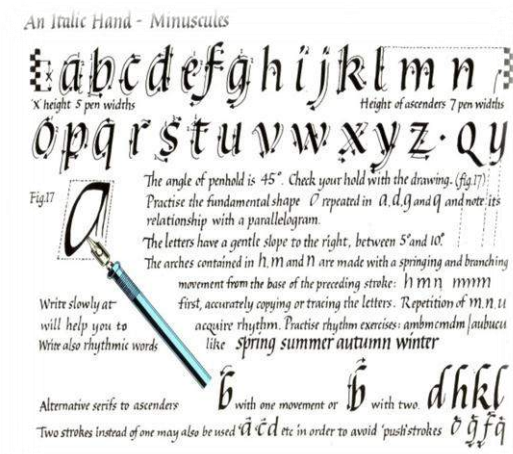 An Italic Hand - Minuscules
a b c d e f g h i j k l m n
'X' height 5 pen widths Height of ascenders 7 pen widths
o p q r s t u v w x y z · q y
The angle of penhold is 45°. Check your hold with the drawing. (fig.17)
Fig.17 Practise the fundamental shape O repeated in a,d,g and q and note its
relationship with a parallelogram.
The letters have a gentle slope to the right, between 5° and 10°
The arches contained in h, m and n are made with a springing and branching
movement from the base of the preceding stroke: h m n mmm
Write slowly at first, accurately copying or tracing the letters. Repetition of m, n, u
will help you to acquire rhythm. Practise rhythm exercises: ambmcmdm | aubucu
Write also rhythmic words like spring summer autumn winter
Alternative serifs to ascenders b with one movement or b with two. d h k l
Two strokes instead of one may also be used 'a c d etc in order to avoid 'push' strokes o g f q